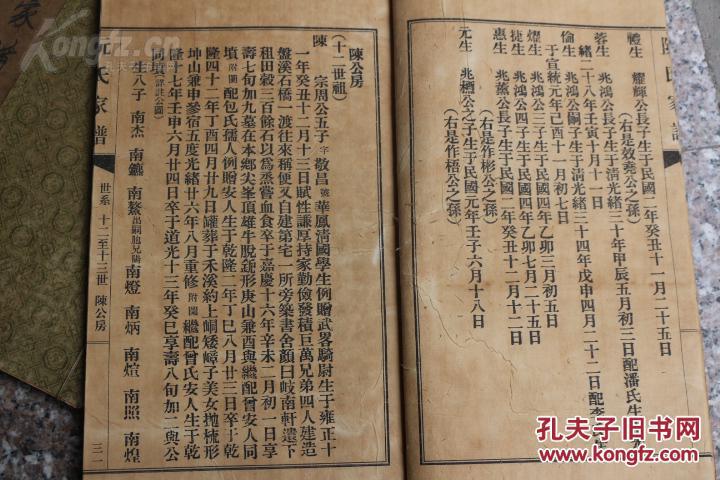 禮生 耀輝公長子生于民國二年癸丑十一月二十五日
(右是效堯公之孫)
蓉生 兆鴻公長子生于清光緒三十年甲辰五月初三日配潘氏生
緒二十八年壬寅十月十一日
倫生 兆鴻公嗣子生于清光緒三十四年戊申四月二十二日配李
于宣統元年己酉十一月初七日
燦生 兆鴻公三子生于民國四年乙卯三月初五日
捷生 兆鴻公四子生于民國四年乙卯七月二十五日
惠生 兆薰公長子生于民國二年癸丑十二月十二日
(右是作彬公之孫)
元生 兆槱公之子生于民國元年壬子六月十八日
(右是作梧公之孫)
陳公房
(十二世祖)
陳 宗周公五子字敬昌號華鳳清國學生例贈武畧騎尉生于雍正十
一年癸丑十二月十三日賦性謙厚持家勤儉發積巨萬兄弟四人建造
盤溪石橋一渡往來稱便又自建第宅一所旁築書舍顏曰岐南軒遺下
租田穀三百餘石以為烝嘗血食卒于嘉慶十六年辛未二月初一日享
壽七旬加九墓在本鄉尖峯頂雄牛脫銃形庚山兼酉與繼配曾安人同
墳附圖配包氏孺人例贈安人生于乾隆二年丁巳八月廿三日卒于乾
隆四十二年丁酉四月廿九日礶葬于禾溪約上峒矮嶂子美女拋梳形
坤山兼申參宿五度光緒廿六年八月重修附圖繼配曾氏安人生于乾
隆十七年壬申六月廿四日卒于道光十三年癸巳享壽八旬加二與公
同墳(詳註公圖)
生八子 南杰 南鑣 南鰲出嗣胞兄陽 南燈 南炳 南煊 南照 南煌
阮氏家譜
世系 十二至十三世 陳公房
三一
孔夫子旧书网
KONGFZ.COM